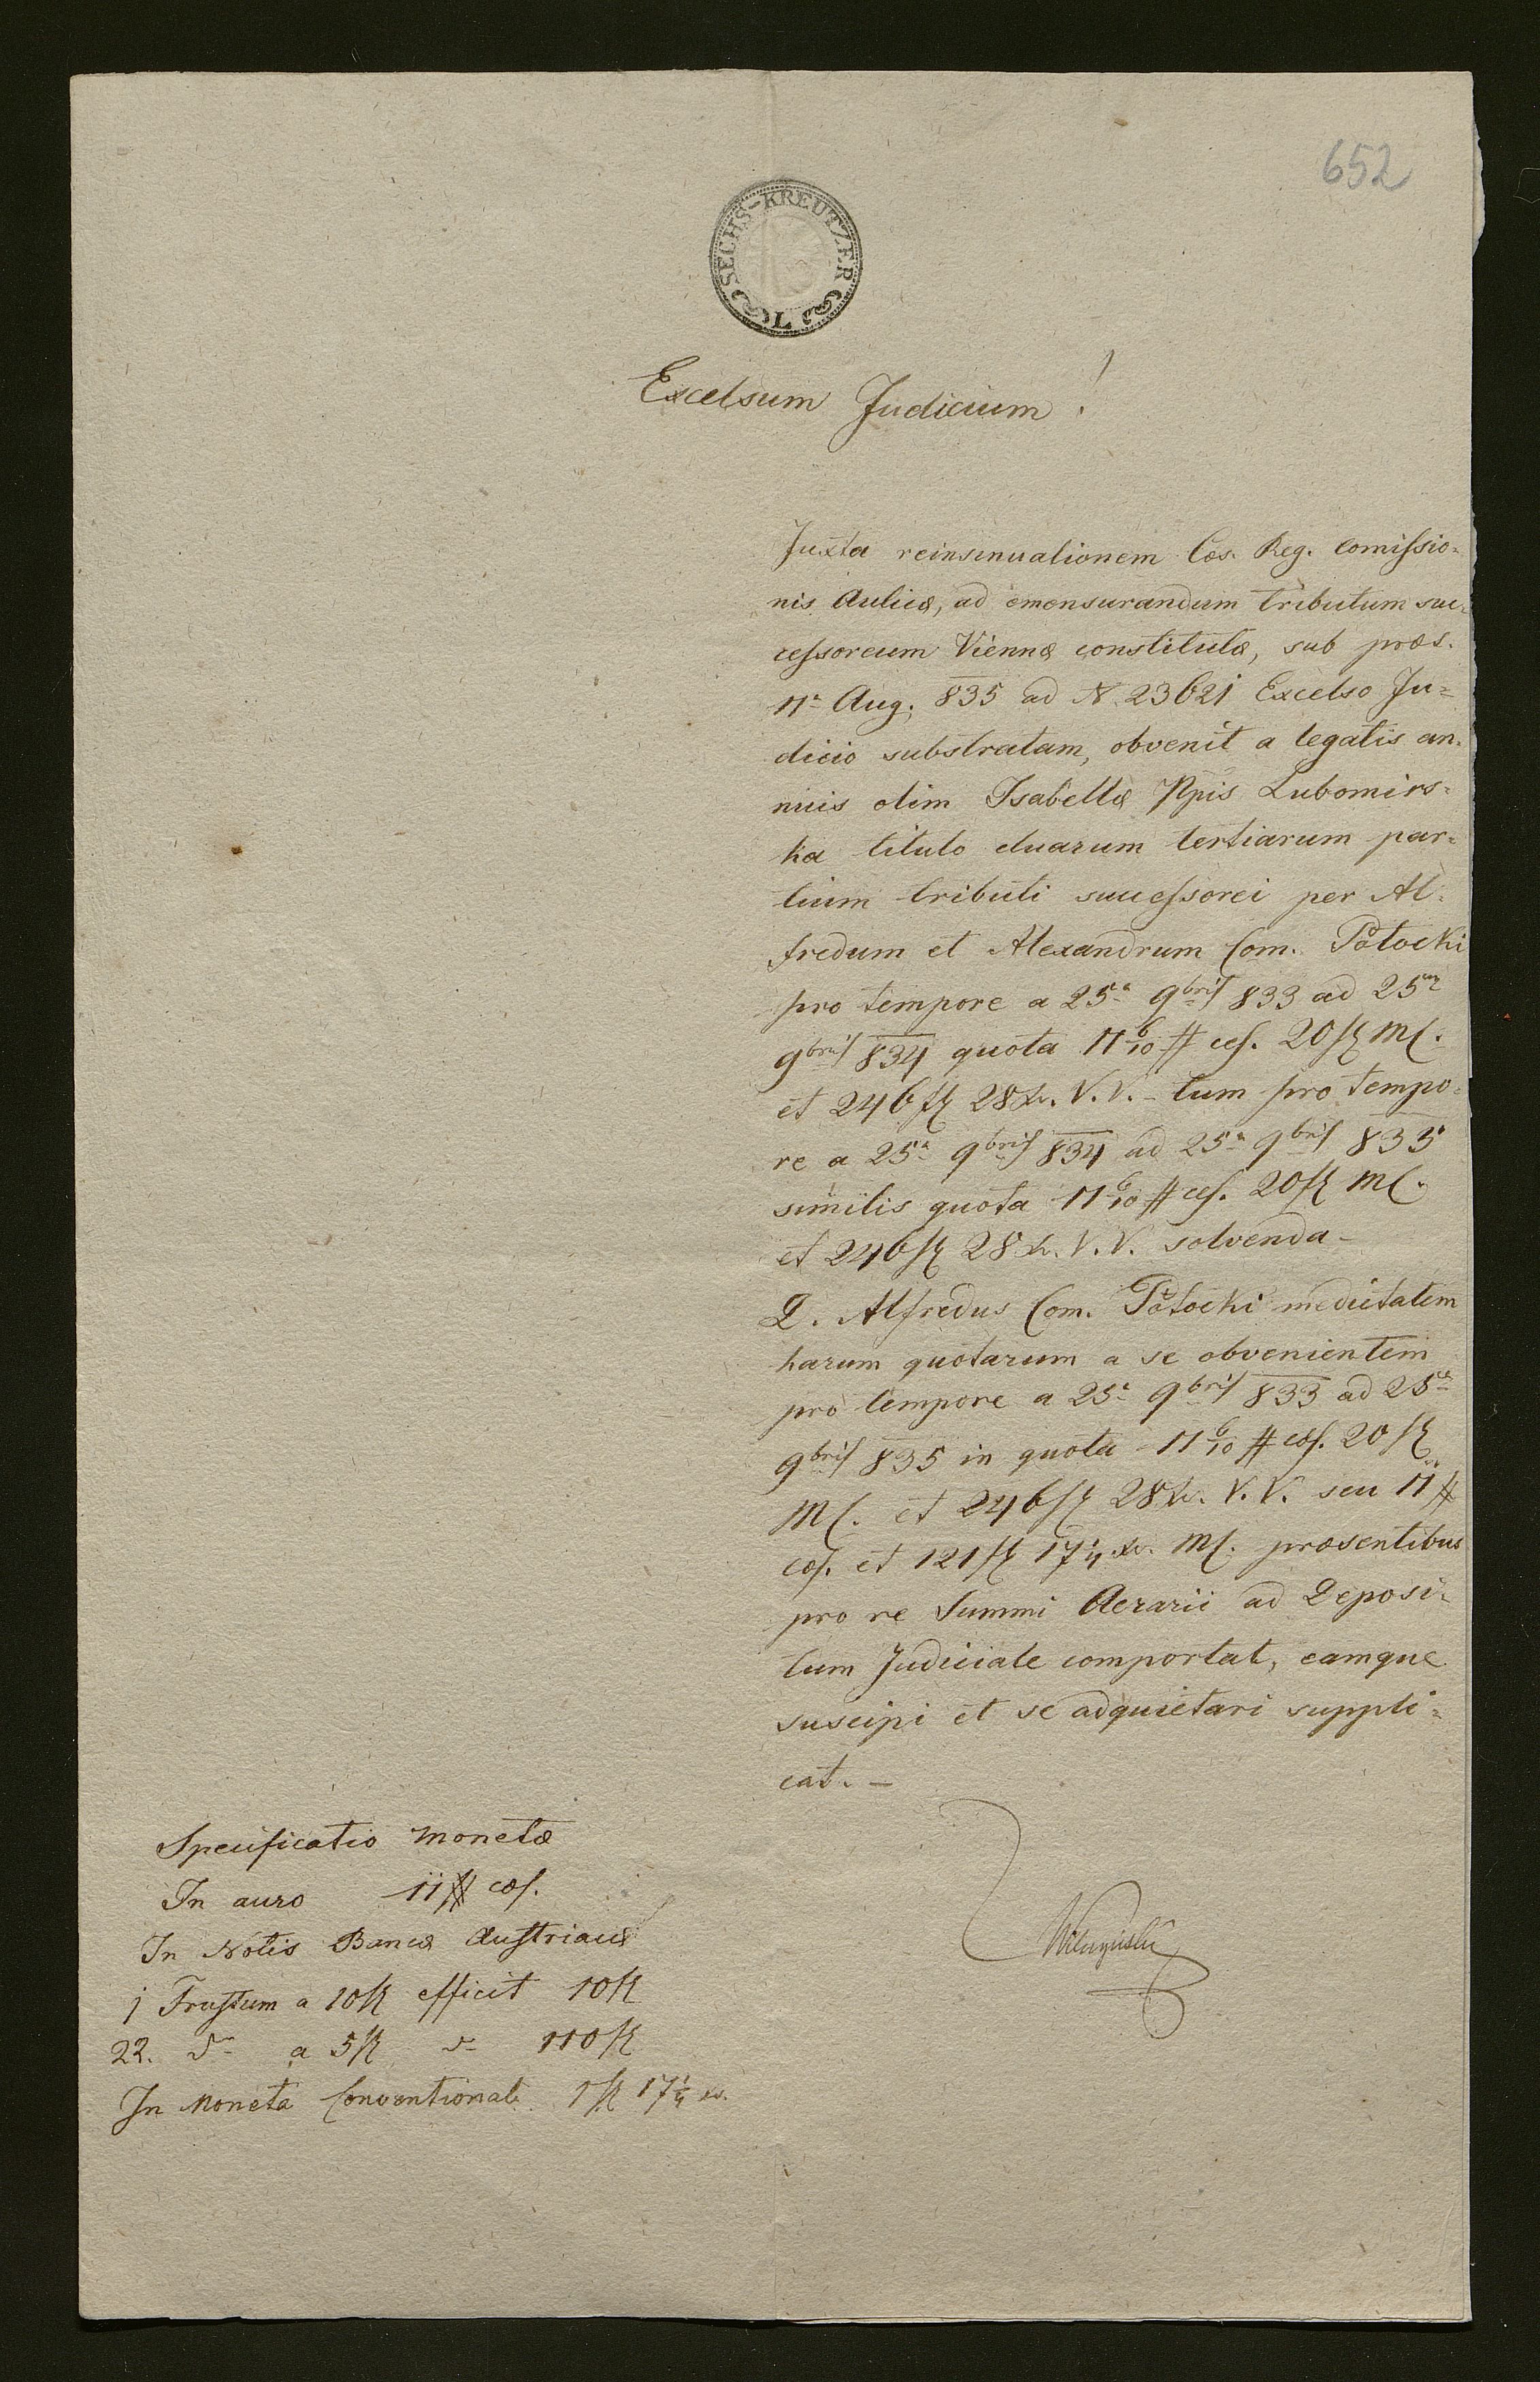 652
SECHS-KREUTZER
L
Excelsum Judicium!
Juxta reinsinuationem Cæs. Reg. Comissio=
nis Aulicæ, ad emensurandum tributum suc=
cessoreum Viennæ constitutæ, sub præs.
11a Aug. 835 ad N. 23621 Excelso Ju=
dicio substratam, obvenit a legatis an=
nuis olim Isabellæ Ppis Lubomirs=
ka titulo duarum tertiarum par=
tium tributi successorei per Al=
fredum et Alexandrum Com. Potocki
pro tempore a 25a 9bris 833 ad 25a
9bris 834 quota 11 6/10 # cæs. 20 fl MC.
et 246 fl 28 xr. V.V. – tum pro tempo=
re a 25a 9bris 834 ad 25a 9bris 835
similis quota 11 6/10 # cæs. 20 fl MC.
et 246 fl 28 xr. V.V. solvenda –
D. Alfredus Com. Potocki medietatem
harum quotarum a se obvenientem
pro tempore a 25a 9bris 833 ad 25a
9bris 835 in quota 11 6/10 # cæs. 20 fl
MC. et 246 fl 28 xr. V.V. seu 11 #
cæs. et 121 fl 17 1/4 xr. MC. præsentibus
pro re Summi Aerarii ad Deposi=
tum Judiciale comportat, eamque
suscipi et se adquietari suppli=
cat. –
Specificatio Monetæ
In auro 11 # cæs.
In Notis Bancæ Austriacæ
1 Frustum a 10 fl efficit 10 fl
22. do a 5 fl do 110 fl
In Moneta Conventionali 1 fl 17 1/4 xr.